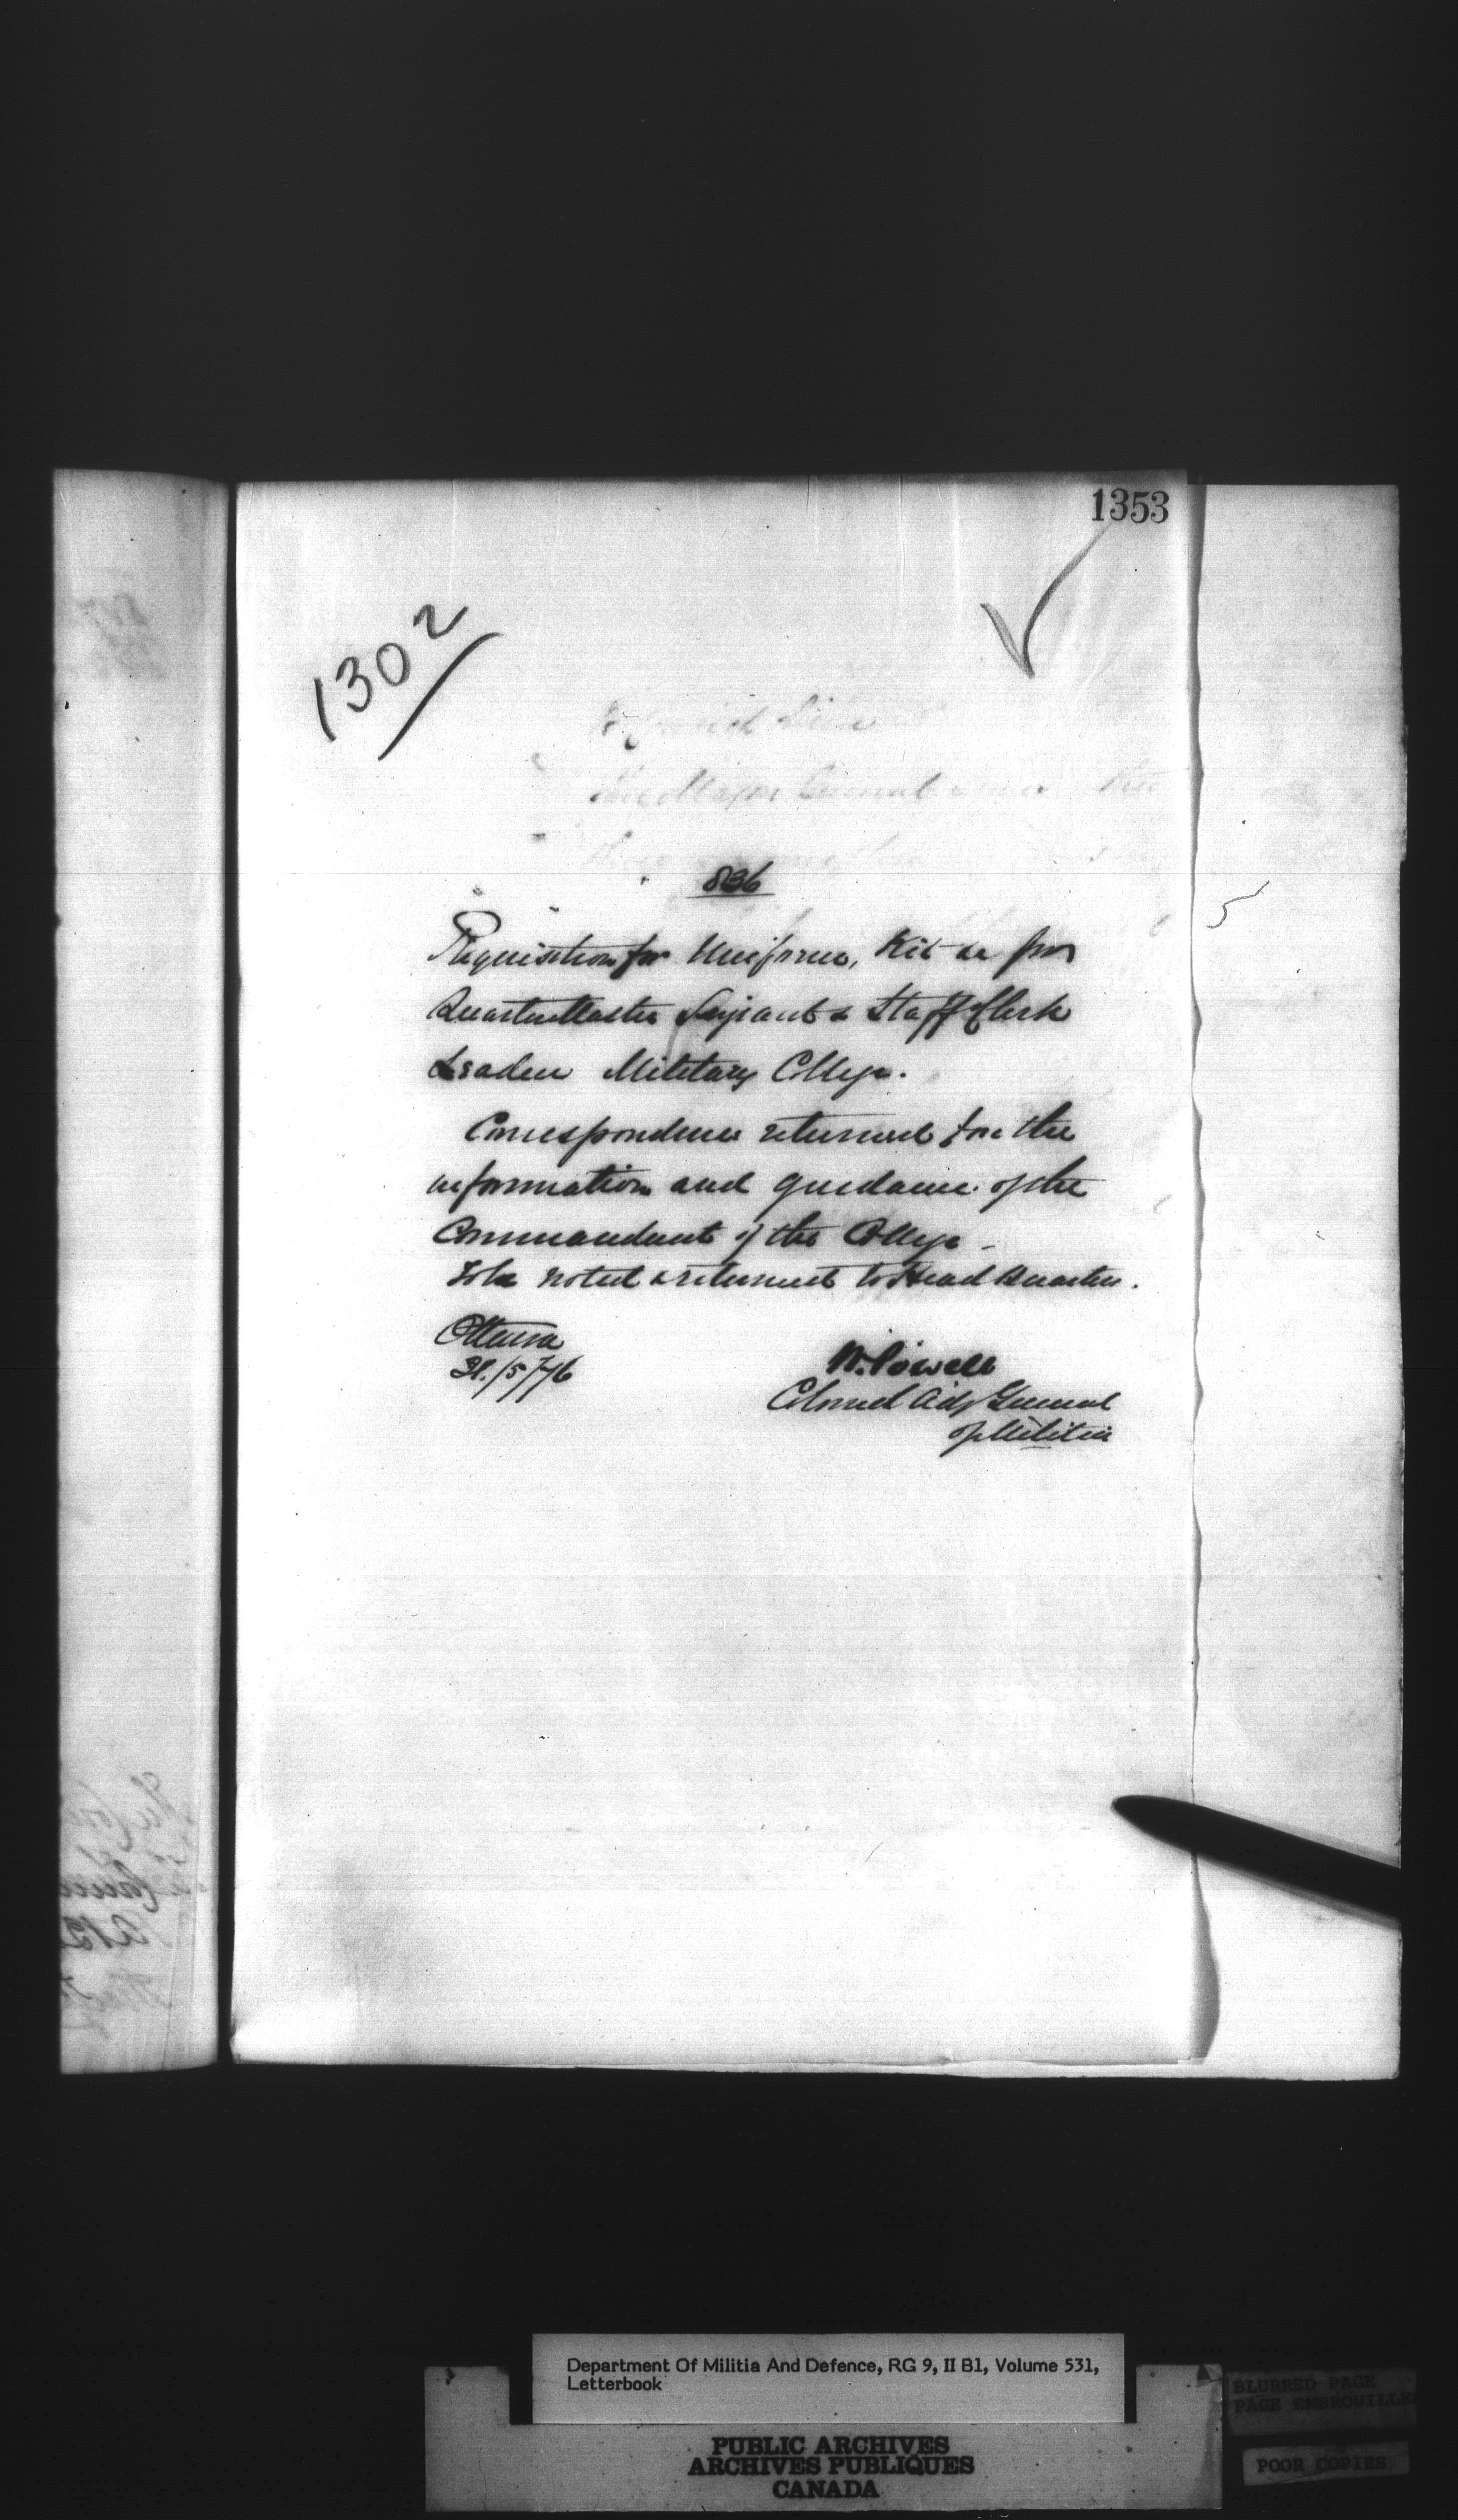 1353
1302
836
Requisition for Uniforms, Kit &c for
Quarter Master Serjeant & Staff Clerk
Military College.
Correspondence returned for the
information and guidance of the
Commandant of the College -
To be noted & returned to Head Quarters.
Ottawa
31/5/76
W. Powell
Colonel Adj General
of Militia
Department Of Militia And Defence, RG 9, II B1, Volume 531,
Letterbook
PUBLIC ARCHIVES
ARCHIVES PUBLIQUES
CANADA
BLURRED PAGE
PAGE EMBROUILLEE
POOR COPIES